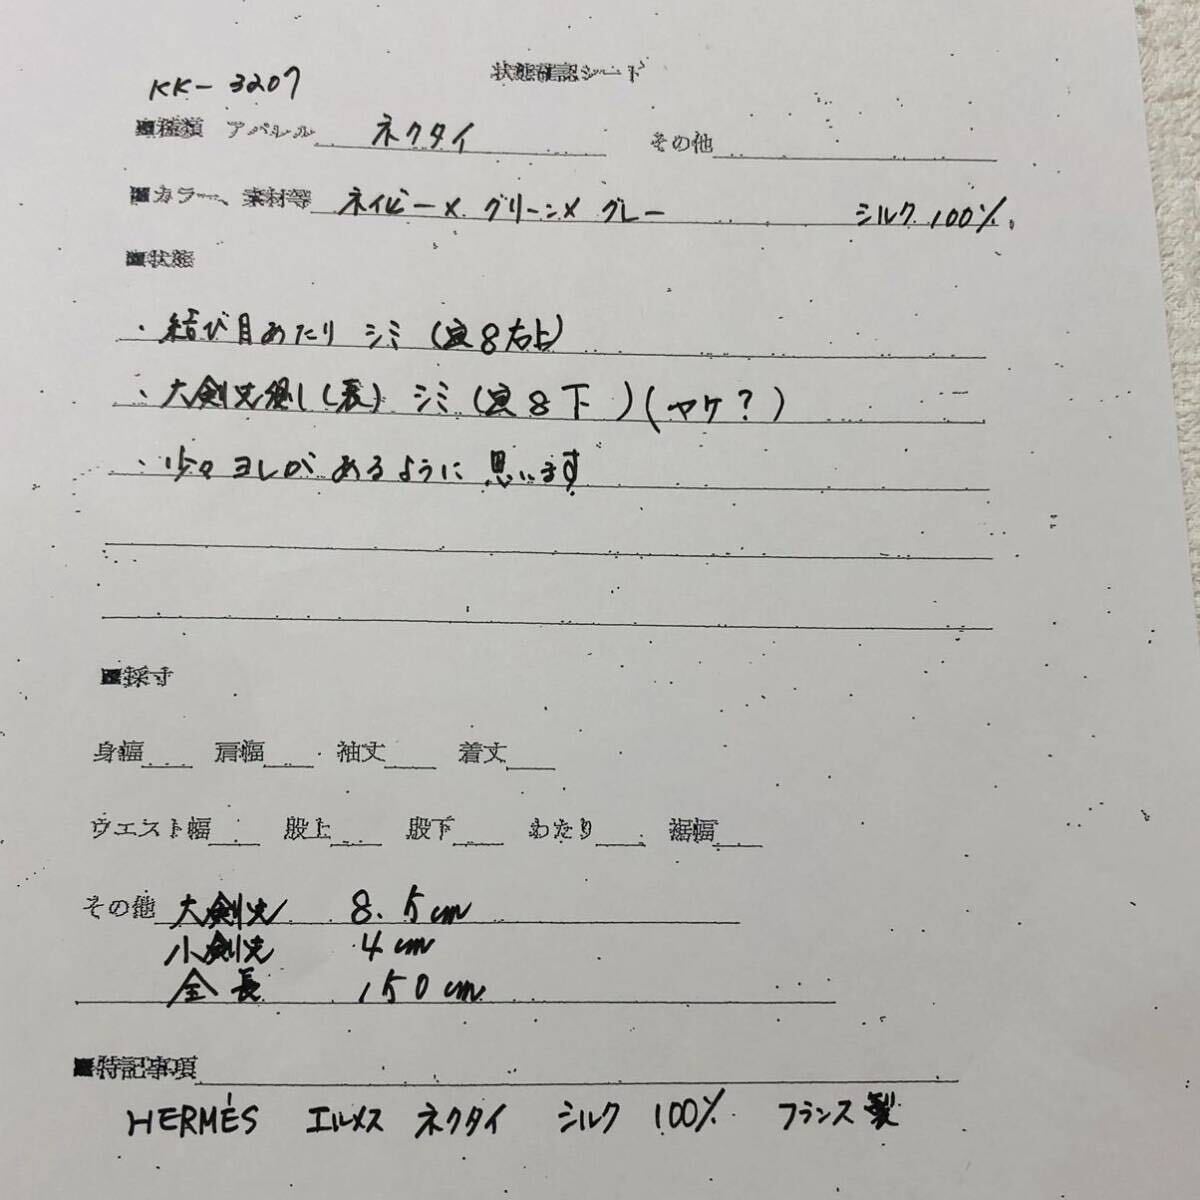 状態確認シート
KK-3207
■種類 アパレル ネクタイ その他
■カラー、素材等 ネイビー× グリーン× グレー シルク 100%。
■状態
・結び目あたり シミ (写8右上)
・大剣先 (裏) シミ (写8下) (ヤケ?)
・少々ヨレが あるように 思います
■採寸
身幅 肩幅 袖丈 着丈
ウエスト幅 股上 股下 わたり 裾幅
その他 大剣先 8.5cm
小剣先 4cm
全長 150cm
■特記事項
HERMÈS エルメス ネクタイ シルク 100% フランス製